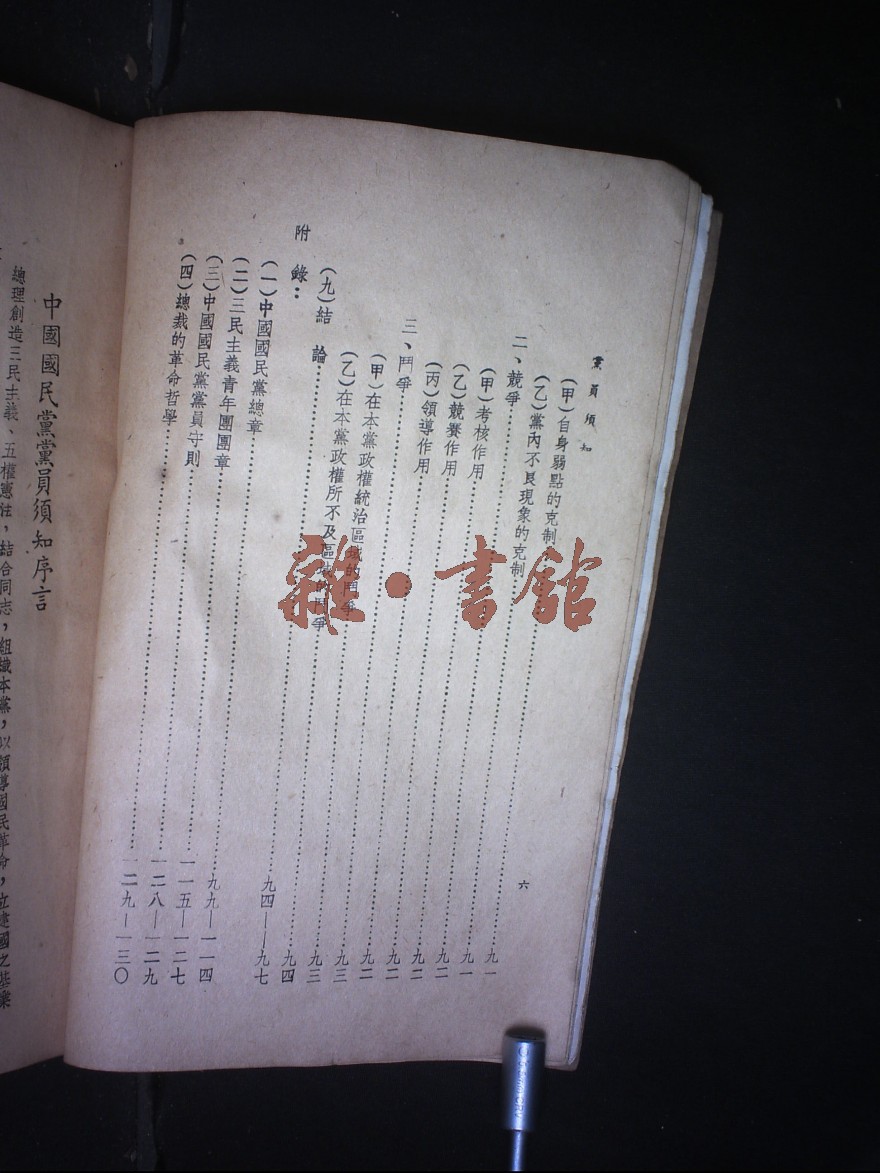 黨員須知
六
(甲)自身弱點的克制……九一
(乙)黨內不良現象的克制……九一
二、競爭……九二
(甲)考核作用……九二
(乙)競賽作用……九二
(丙)領導作用……九二
三、鬥爭……九三
(甲)在本黨政權統治區域的鬥爭……九三
(乙)在本黨政權所不及區域的鬥爭……九四
(九)結 論……九四—九七
附 錄：
(一)中國國民黨總章……九九—一一四
(二)三民主義青年團團章……一一五—一二七
(三)中國國民黨黨員守則……一二八—一二九
(四)總裁的革命哲學……一二九—一三〇
中國國民黨黨員須知序言
總理創造三民主義、五權憲法，結合同志，組織本黨，以領導國民革命，立建國之基業
雜·書館